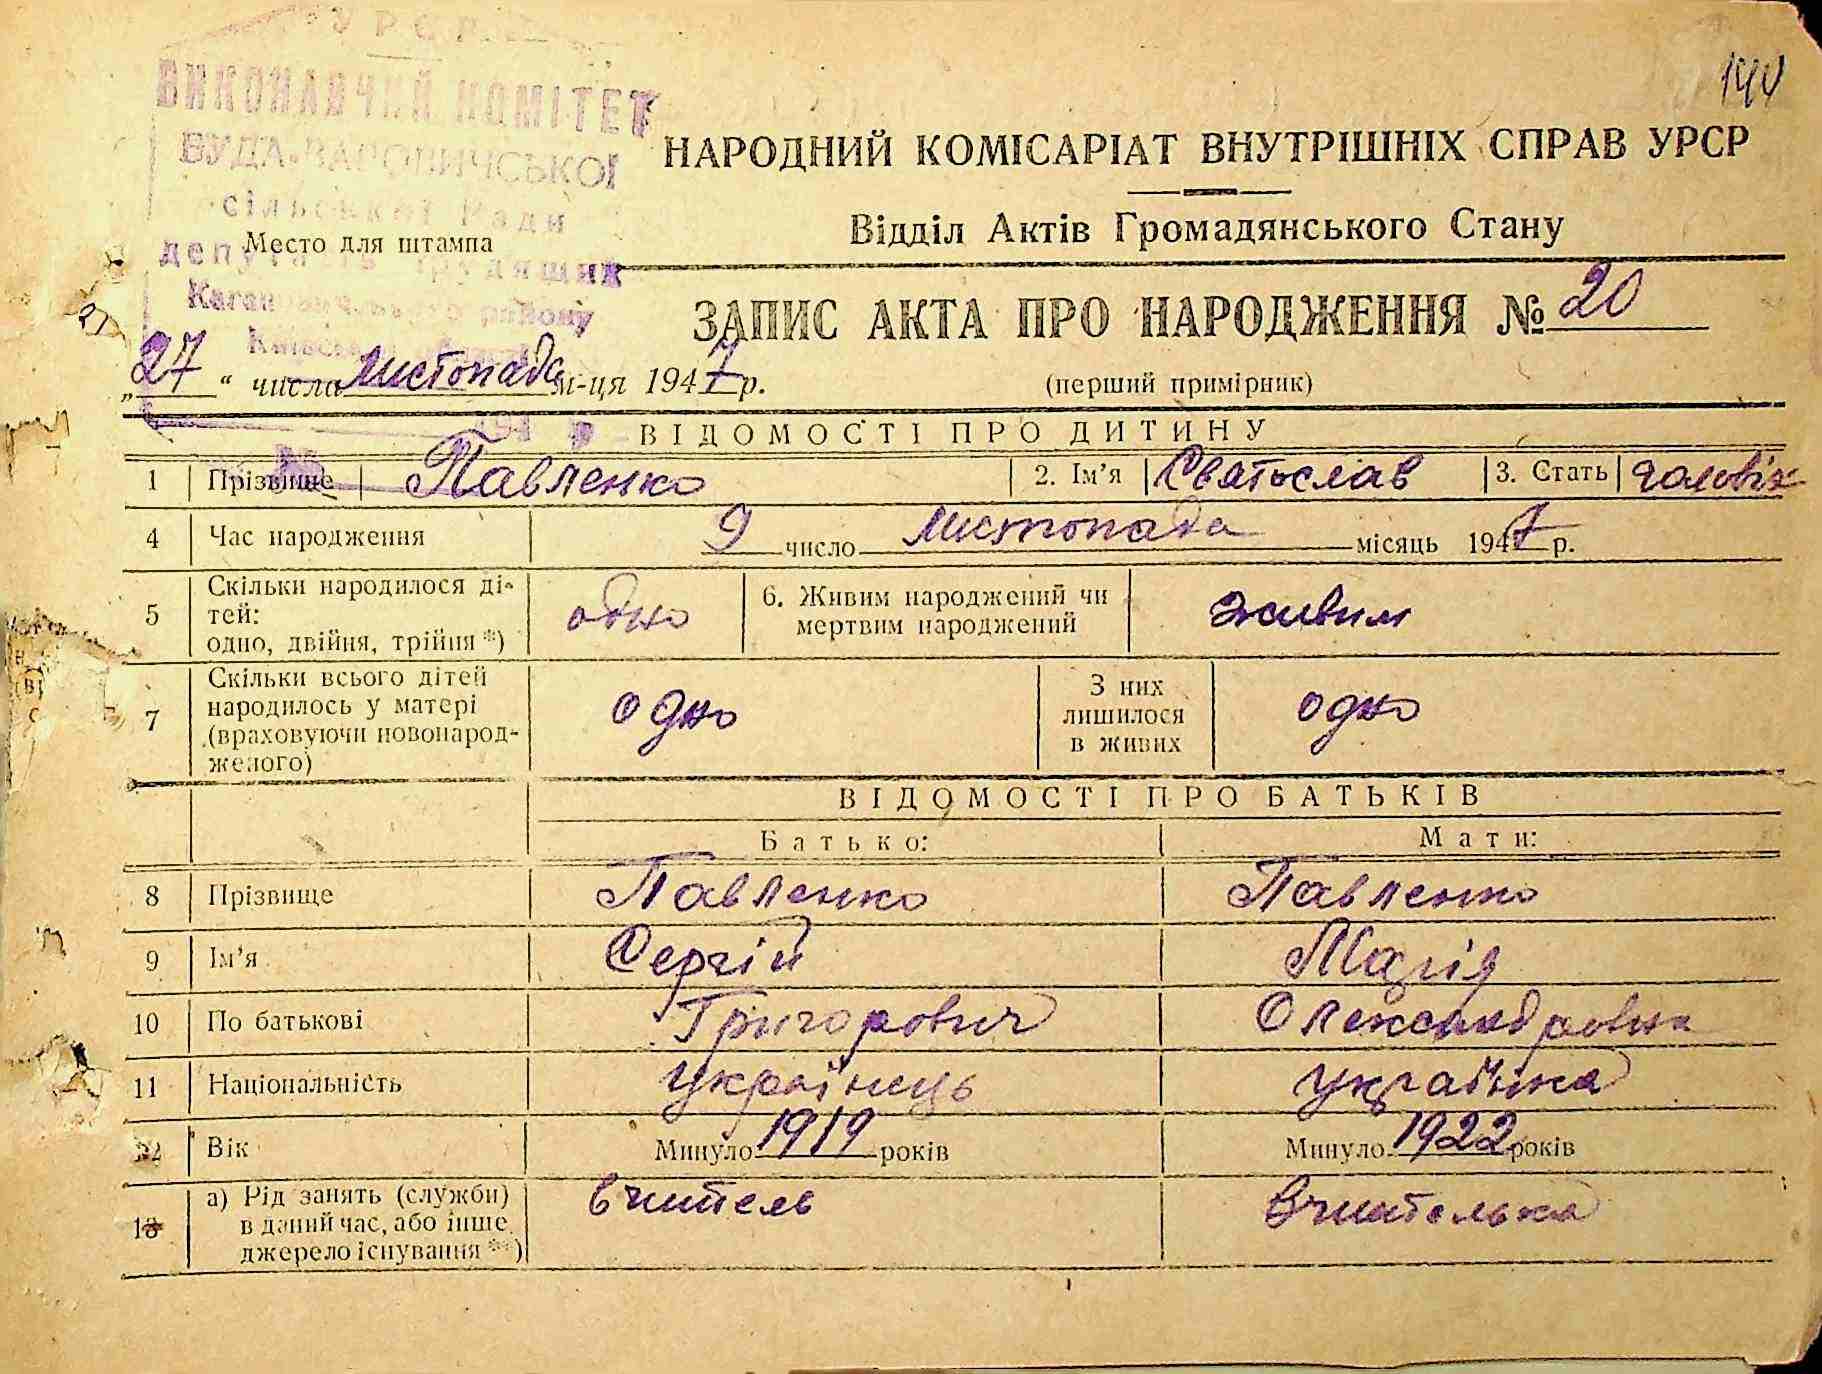 УРСР
140
ВИКОНАВЧИЙ КОМІТЕТ
БУДА-ВАРОВИЧСЬКОЇ
сільської Ради
депутатів трудящих
Кагановичського району
Київської
НАРОДНИЙ КОМІСАРІАТ ВНУТРІШНІХ СПРАВ УРСР
Відділ Актів Громадянського Стану
Место для штампа
ЗАПИС АКТА ПРО НАРОДЖЕННЯ № 20
„27“ числа листопада м-ця 1947 р.
(перший примірник)
ВІДОМОСТІ ПРО ДИТИНУ
1 Прізвище Павленко 2. Ім’я Святослав 3. Стать чоловіч
4 Час народження 9 число листопада місяць 1947 р.
5 Скільки народилося ді-
тей:
одно, двійня, трійня *) одно 6. Живим народжений чи
мертвим народжений живим
7 Скільки всього дітей
народилось у матері
(враховуючи новонарод-
женого) одно З них
лишилося
в живих одно
ВІДОМОСТІ ПРО БАТЬКІВ
Батько: Мати:
8 Прізвище Павленко Павленко
9 Ім’я Сергій Марія
10 По батькові Григорович Олександровна
11 Національність українець українка
12 Вік Минуло 1919 років Минуло 1922 років
13 а) Рід занять (служби)
в даний час, або інше
джерело існування **) вчитель Вчителька